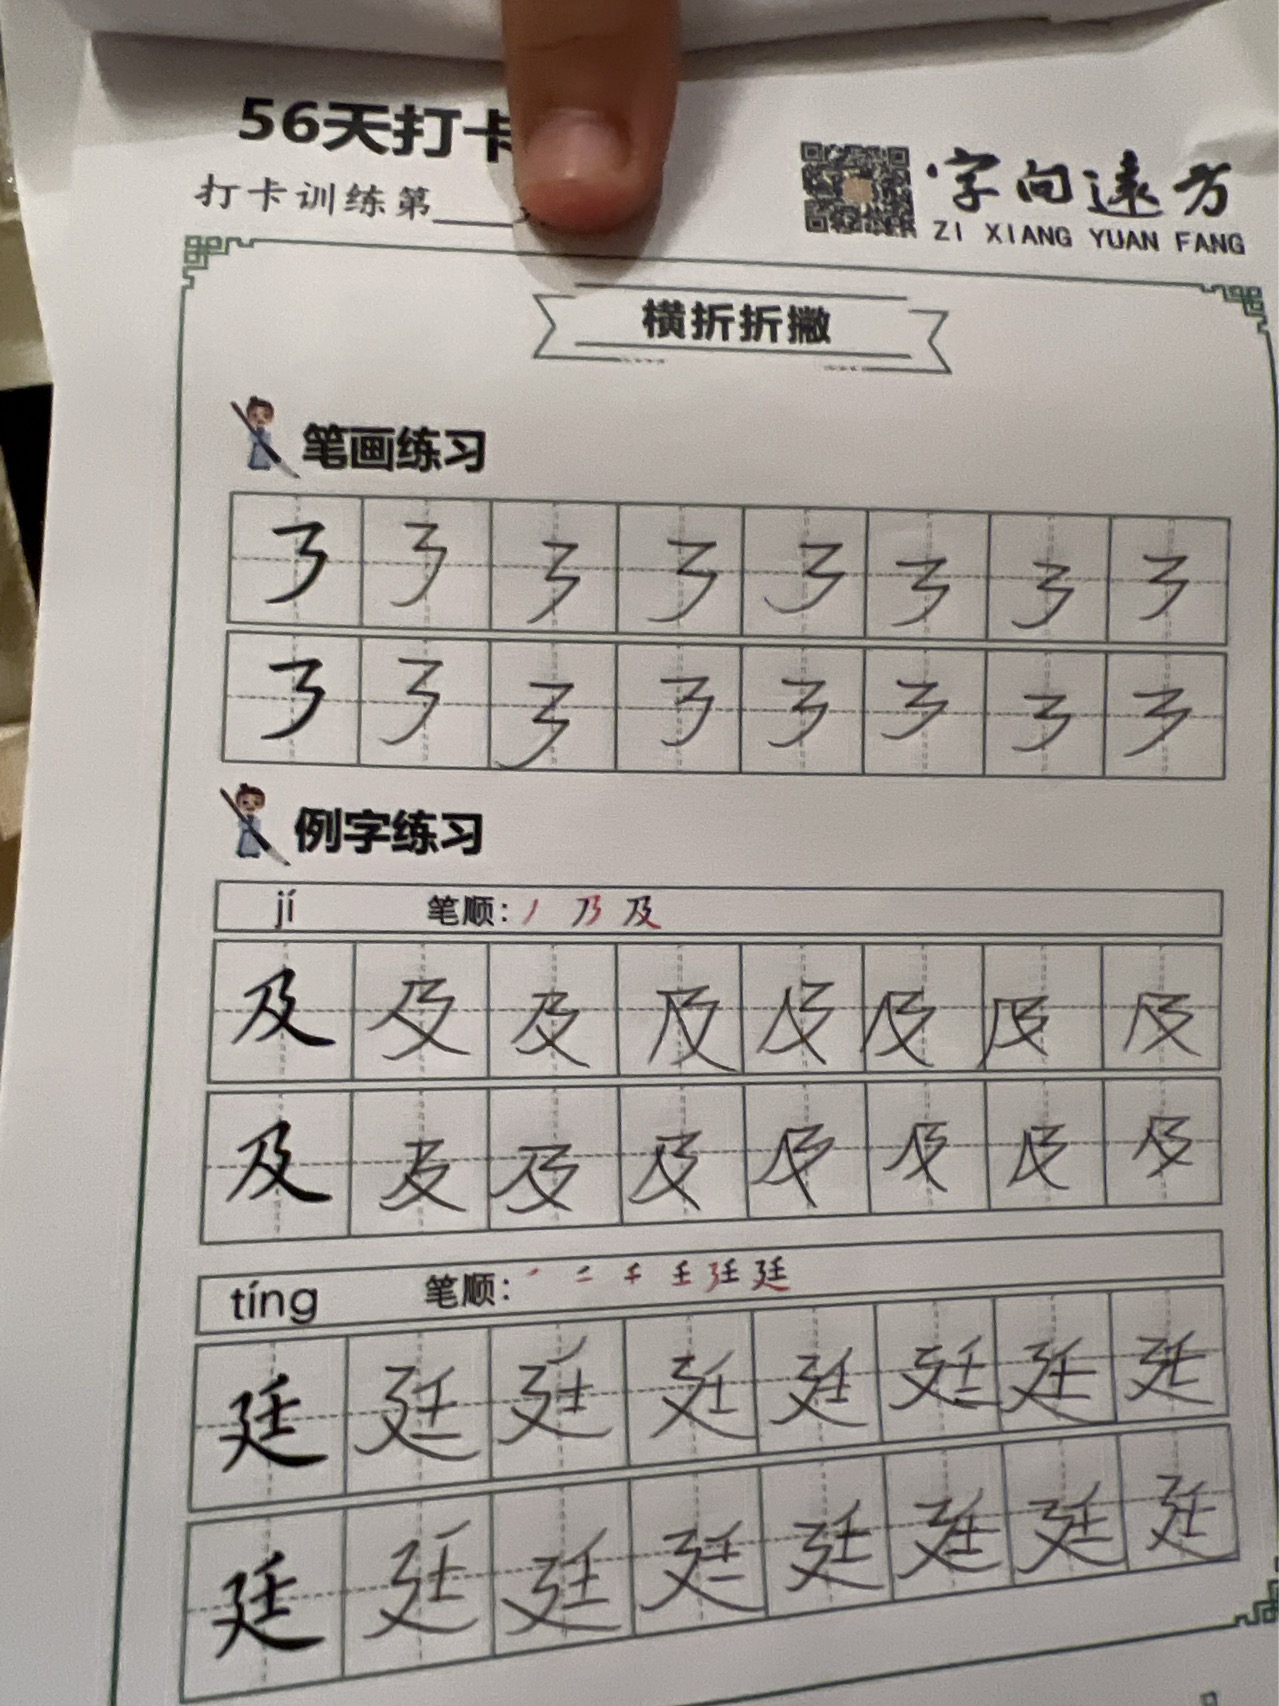 56天打卡
打卡训练第
字向远方
ZI XIANG YUAN FANG
横折折撇
笔画练习
例字练习
jí 笔顺: 丿 乃 及
及 及 及 及 及 及 及 及
及 及 及 及 及 及 及 及
tíng 笔顺: 廷
廷 廷 廷 廷 廷 廷 廷 廷
廷 廷 廷 廷 廷 廷 廷 廷